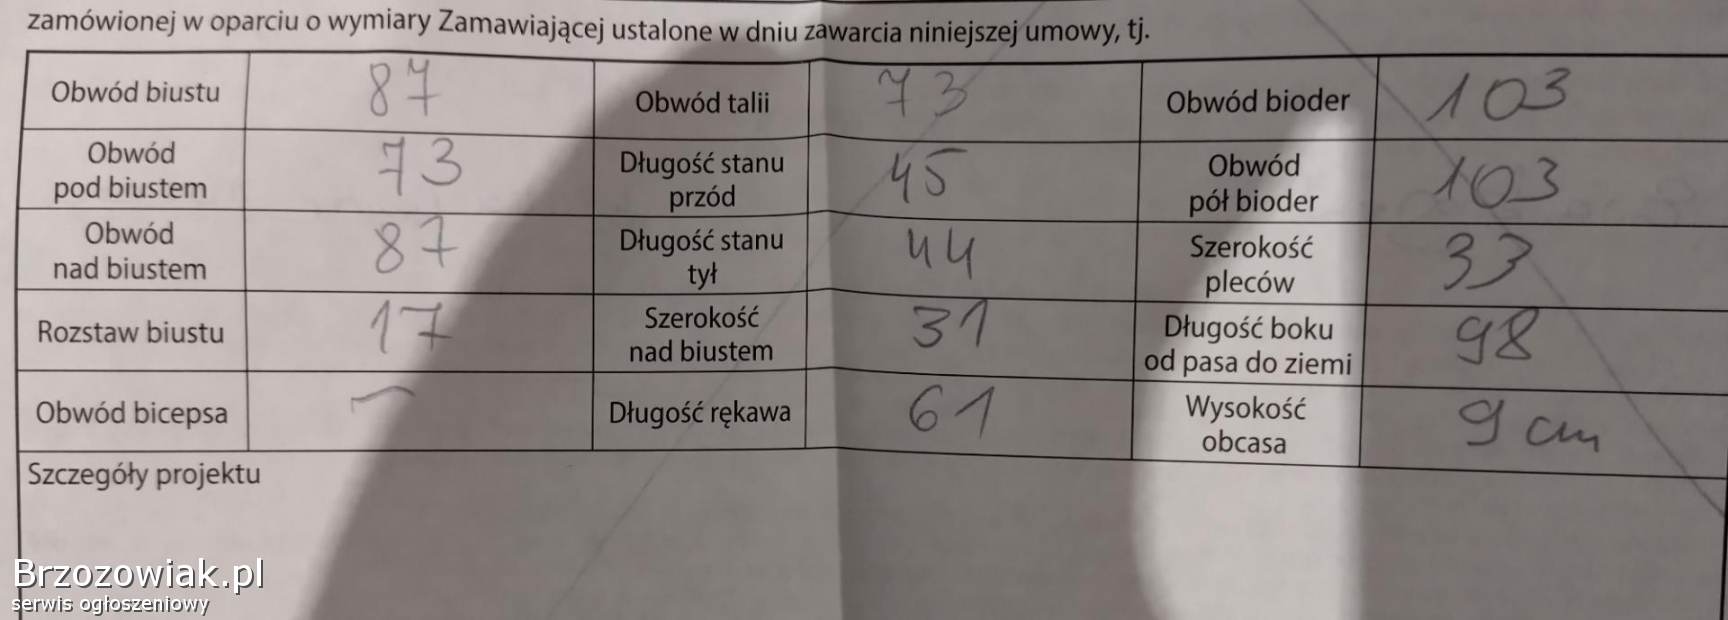 zamówionej w oparciu o wymiary Zamawiającej ustalone w dniu zawarcia niniejszej umowy, tj.
Obwód biustu 87 Obwód talii 73 Obwód bioder 103
Obwód pod biustem 73 Długość stanu przód 45 Obwód pół bioder 103
Obwód nad biustem 87 Długość stanu tył 44 Szerokość pleców 33
Rozstaw biustu 17 Szerokość nad biustem 31 Długość boku od pasa do ziemi 98
Obwód bicepsa Długość rękawa 61 Wysokość obcasa 9 cm
Szczegóły projektu
Brzozowiak.pl
serwis ogłoszeniowy